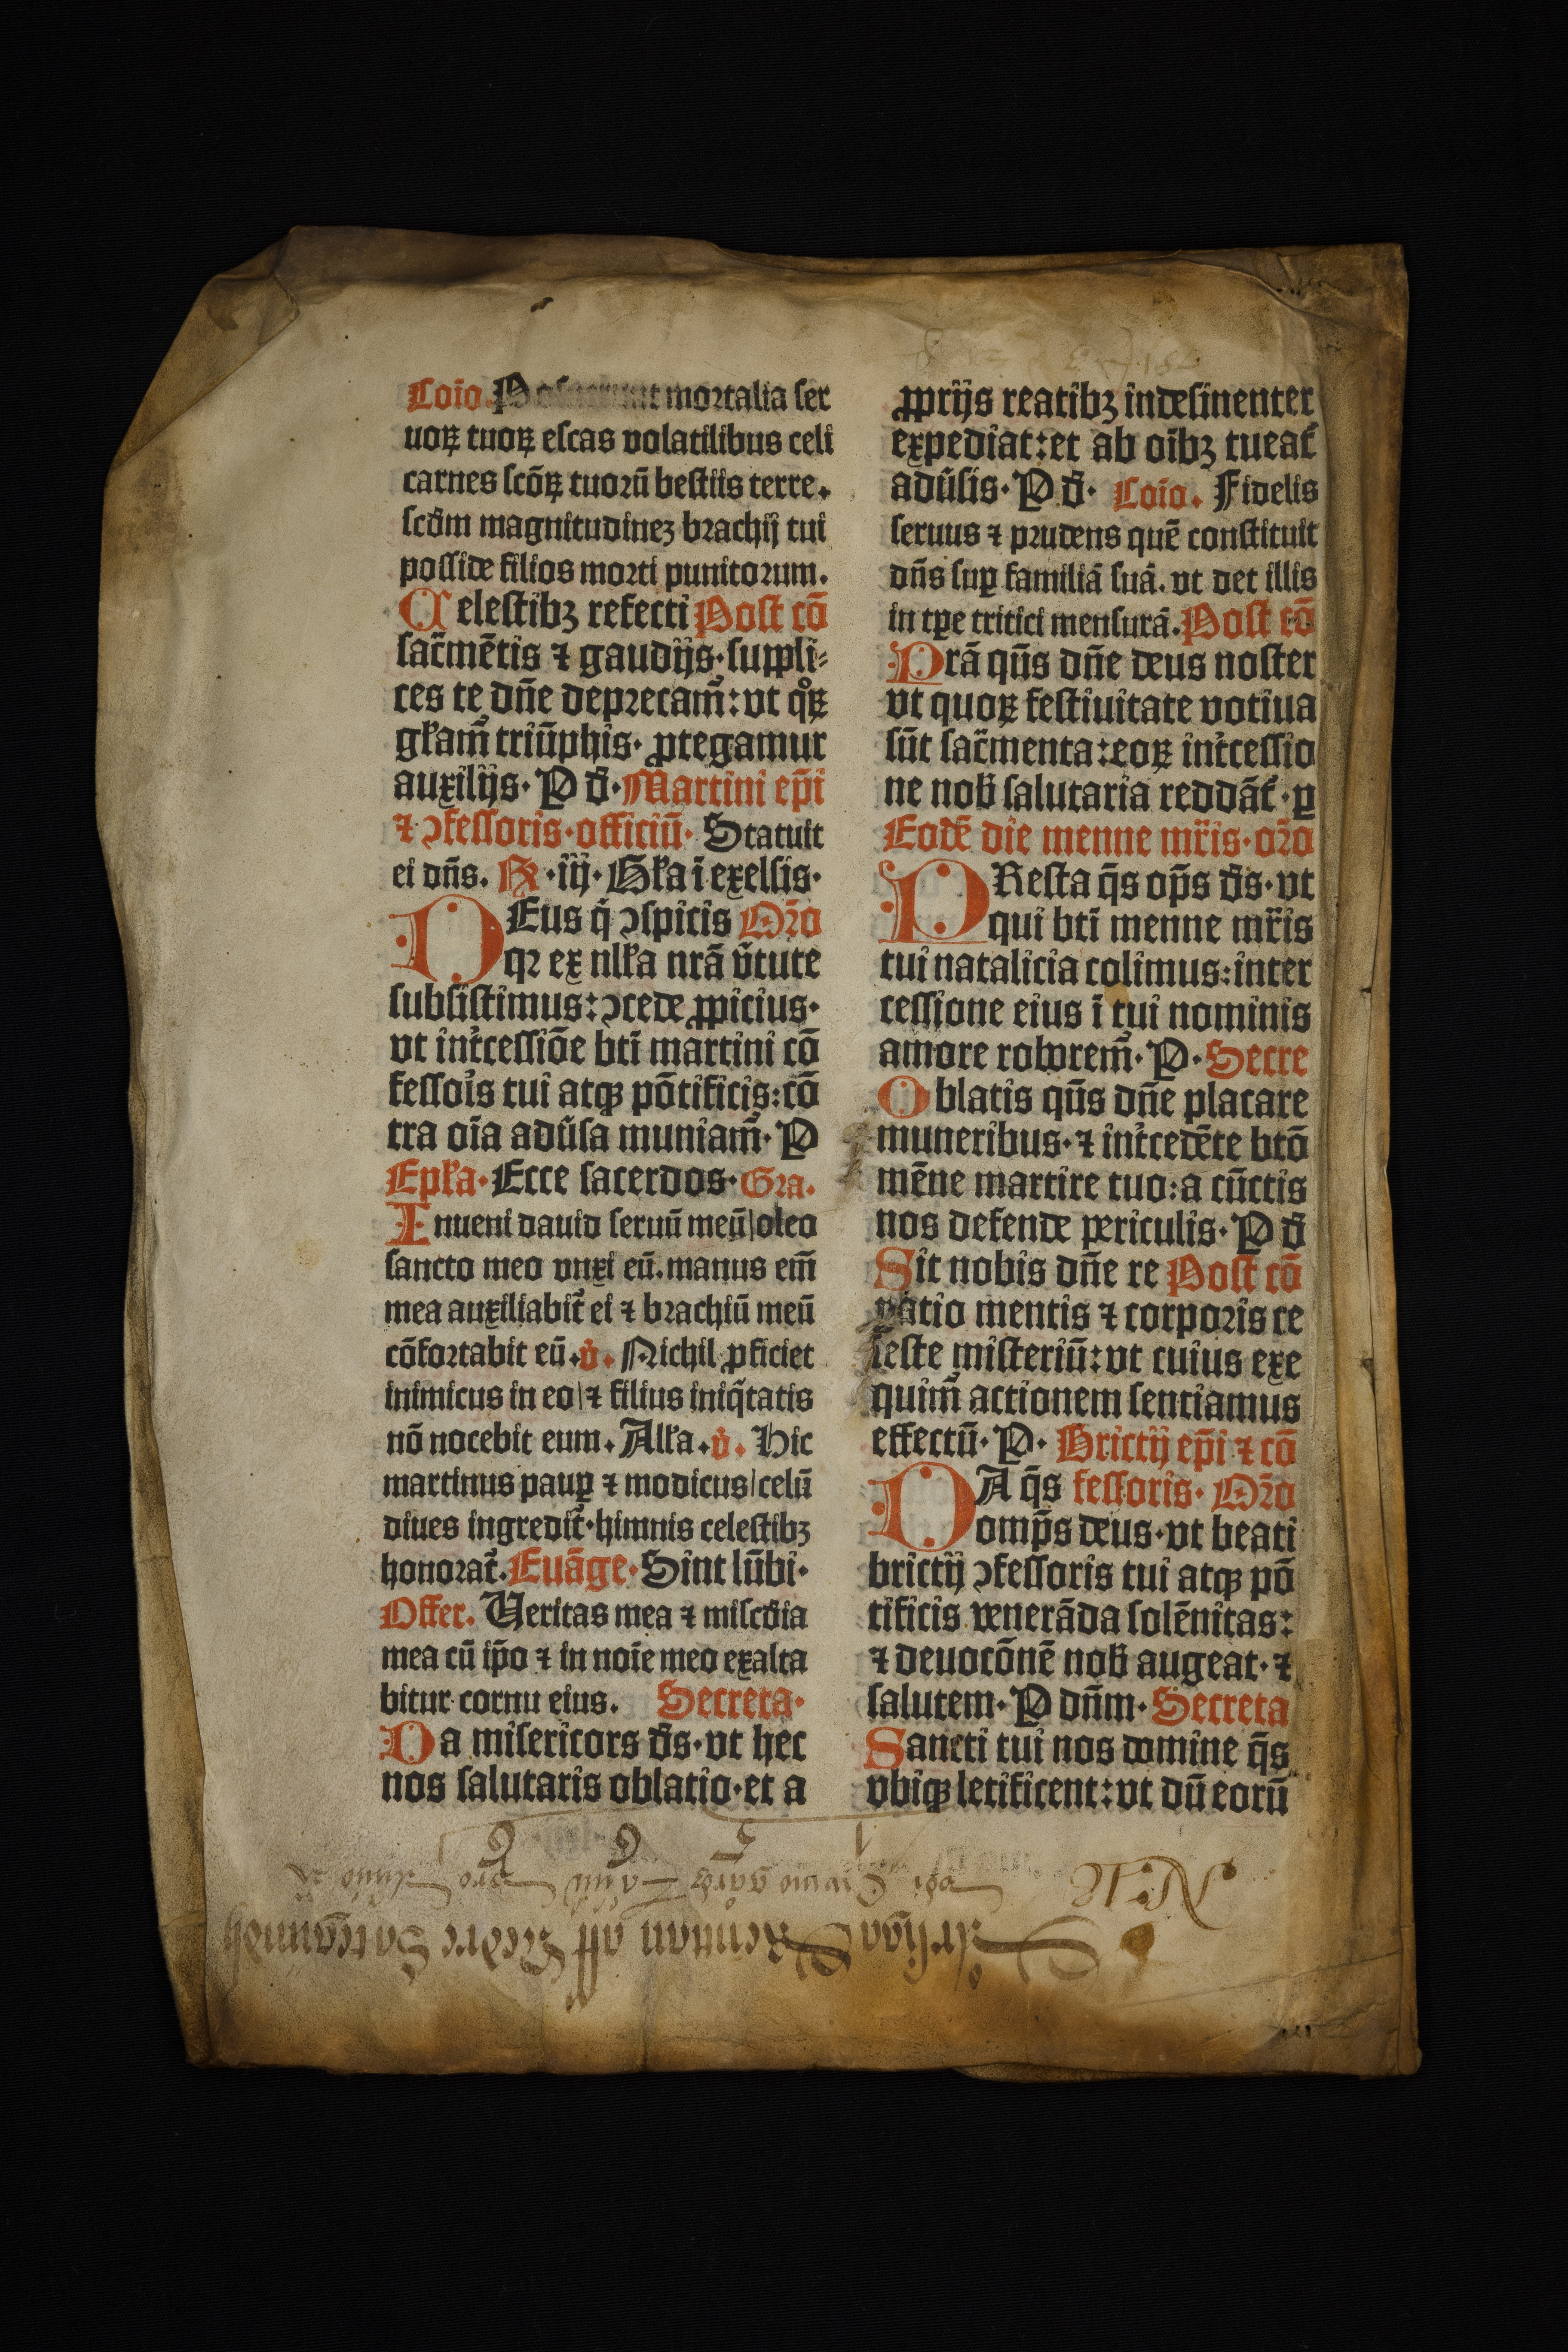 Coĩo. Posuerunt mortalia ſer
uoꝝ tuoꝝ eſcas volatilibus celi
carnes ſcõꝝ tuorũ beſtiis terre.
ſcd̃m magnitudineꝫ brachij tui
poſſide filios morti punitorum.
Celeſtibꝫ refecti Poſt cõ
ſac̃mẽtis ⁊ gaudijs·ſuppli⸗
ces te dñe deprecam̃: vt qͦꝝ
gl̃am̃ triũphis· ꝓtegamur
auxilijs· P d̃· Martini ep̃i
⁊ ↄfeſſoris·officiũ· Statuit
ei dñs. ℞ ·iij· Gl̃a ĩ exelſis·
DEus q̇ ↄſpicis Or̃o
qꝛ ex nl̃la nr̃ã ṽtute
ſubſiſtimus: ↄcede ꝓpicius·
vt int̃ceſſiõe bt̃i martini cõ
feſſoĩs tui atqꝫ põtificis: cõ
tra oĩa adũſa muniam̃· P
Epl̃a· Ecce ſacerdos· Gra.
Inueni dauid ſeruũ meũ|oleo
ſancto meo vnxi eũ. manus em̃
mea auxiliabit̃ ei ⁊ brachiũ meũ
cõfortabit eũ. v̇. Nichil ꝓficiet
inimicus in eo|⁊ filius iniq̃tatis
nõ nocebit eum. All̃a. v̇. Hic
martinus paup̲ ⁊ modicus|celũ
diues ingredit̃·himnis celeſtibꝫ
honorat̃. Euãge· Sint lũbi·
Offer. Veritas mea ⁊ miſcd̃ia
mea cũ ip̃o ⁊ in noĩe meo exalta
bitur cornu eius. Secreta·
Da miſericors d̃s·vt hec
nos ſalutaris oblatio·et a
ꝓprijs reatibꝫ indeſinenter
expediat: et ab oĩbꝫ tueat̃
adũſis· P d̃· Coĩo. Fidelis
ſeruus ⁊ prudens quẽ conſtituit
dñs ſuꝑ familiã ſuã. vt det illis
in tꝑe tritici menſurã. Poſt cõ
Prã qũs dñe deus noſter
vt quoꝝ feſtiuitate votiua
ſũt ſac̃menta: eoꝝ int̃ceſſio
ne nob̃ ſalutaria reddãt̃·ꝑ
Eodẽ die menne mr̃is·or̃o
PReſta q̃s op̃s d̃s·vt
qui bt̃i menne mr̃is
tui natalicia colimus: inter
ceſſione eius ĩ tui nominis
amore roborem̃· P· Secre
Oblatis qũs dñe placare
muneribus·⁊ int̃cedẽte bt̃o
mẽne martire tuo: a cũctis
nos defende periculis· P d̃
Sit nobis dñe re Poſt cõ
patio mentis ⁊ corporis ce
leſte miſteriũ: vt cuius exe
quim̃ actionem ſentiamus
effectũ· P· Brictij ep̃i ⁊ cõ
DA q̃s feſſoris· Or̃o
omp̃s deus·vt beati
brictij ↄfeſſoris tui atqꝫ põ
tificis venerãda ſolẽnitas:
⁊ deuocõnẽ nob̃ augeat·⁊
ſalutem· P dñm· Secreta
Sancti tui nos domine q̃s
vbiqꝫ letificent: vt dũ eorũ